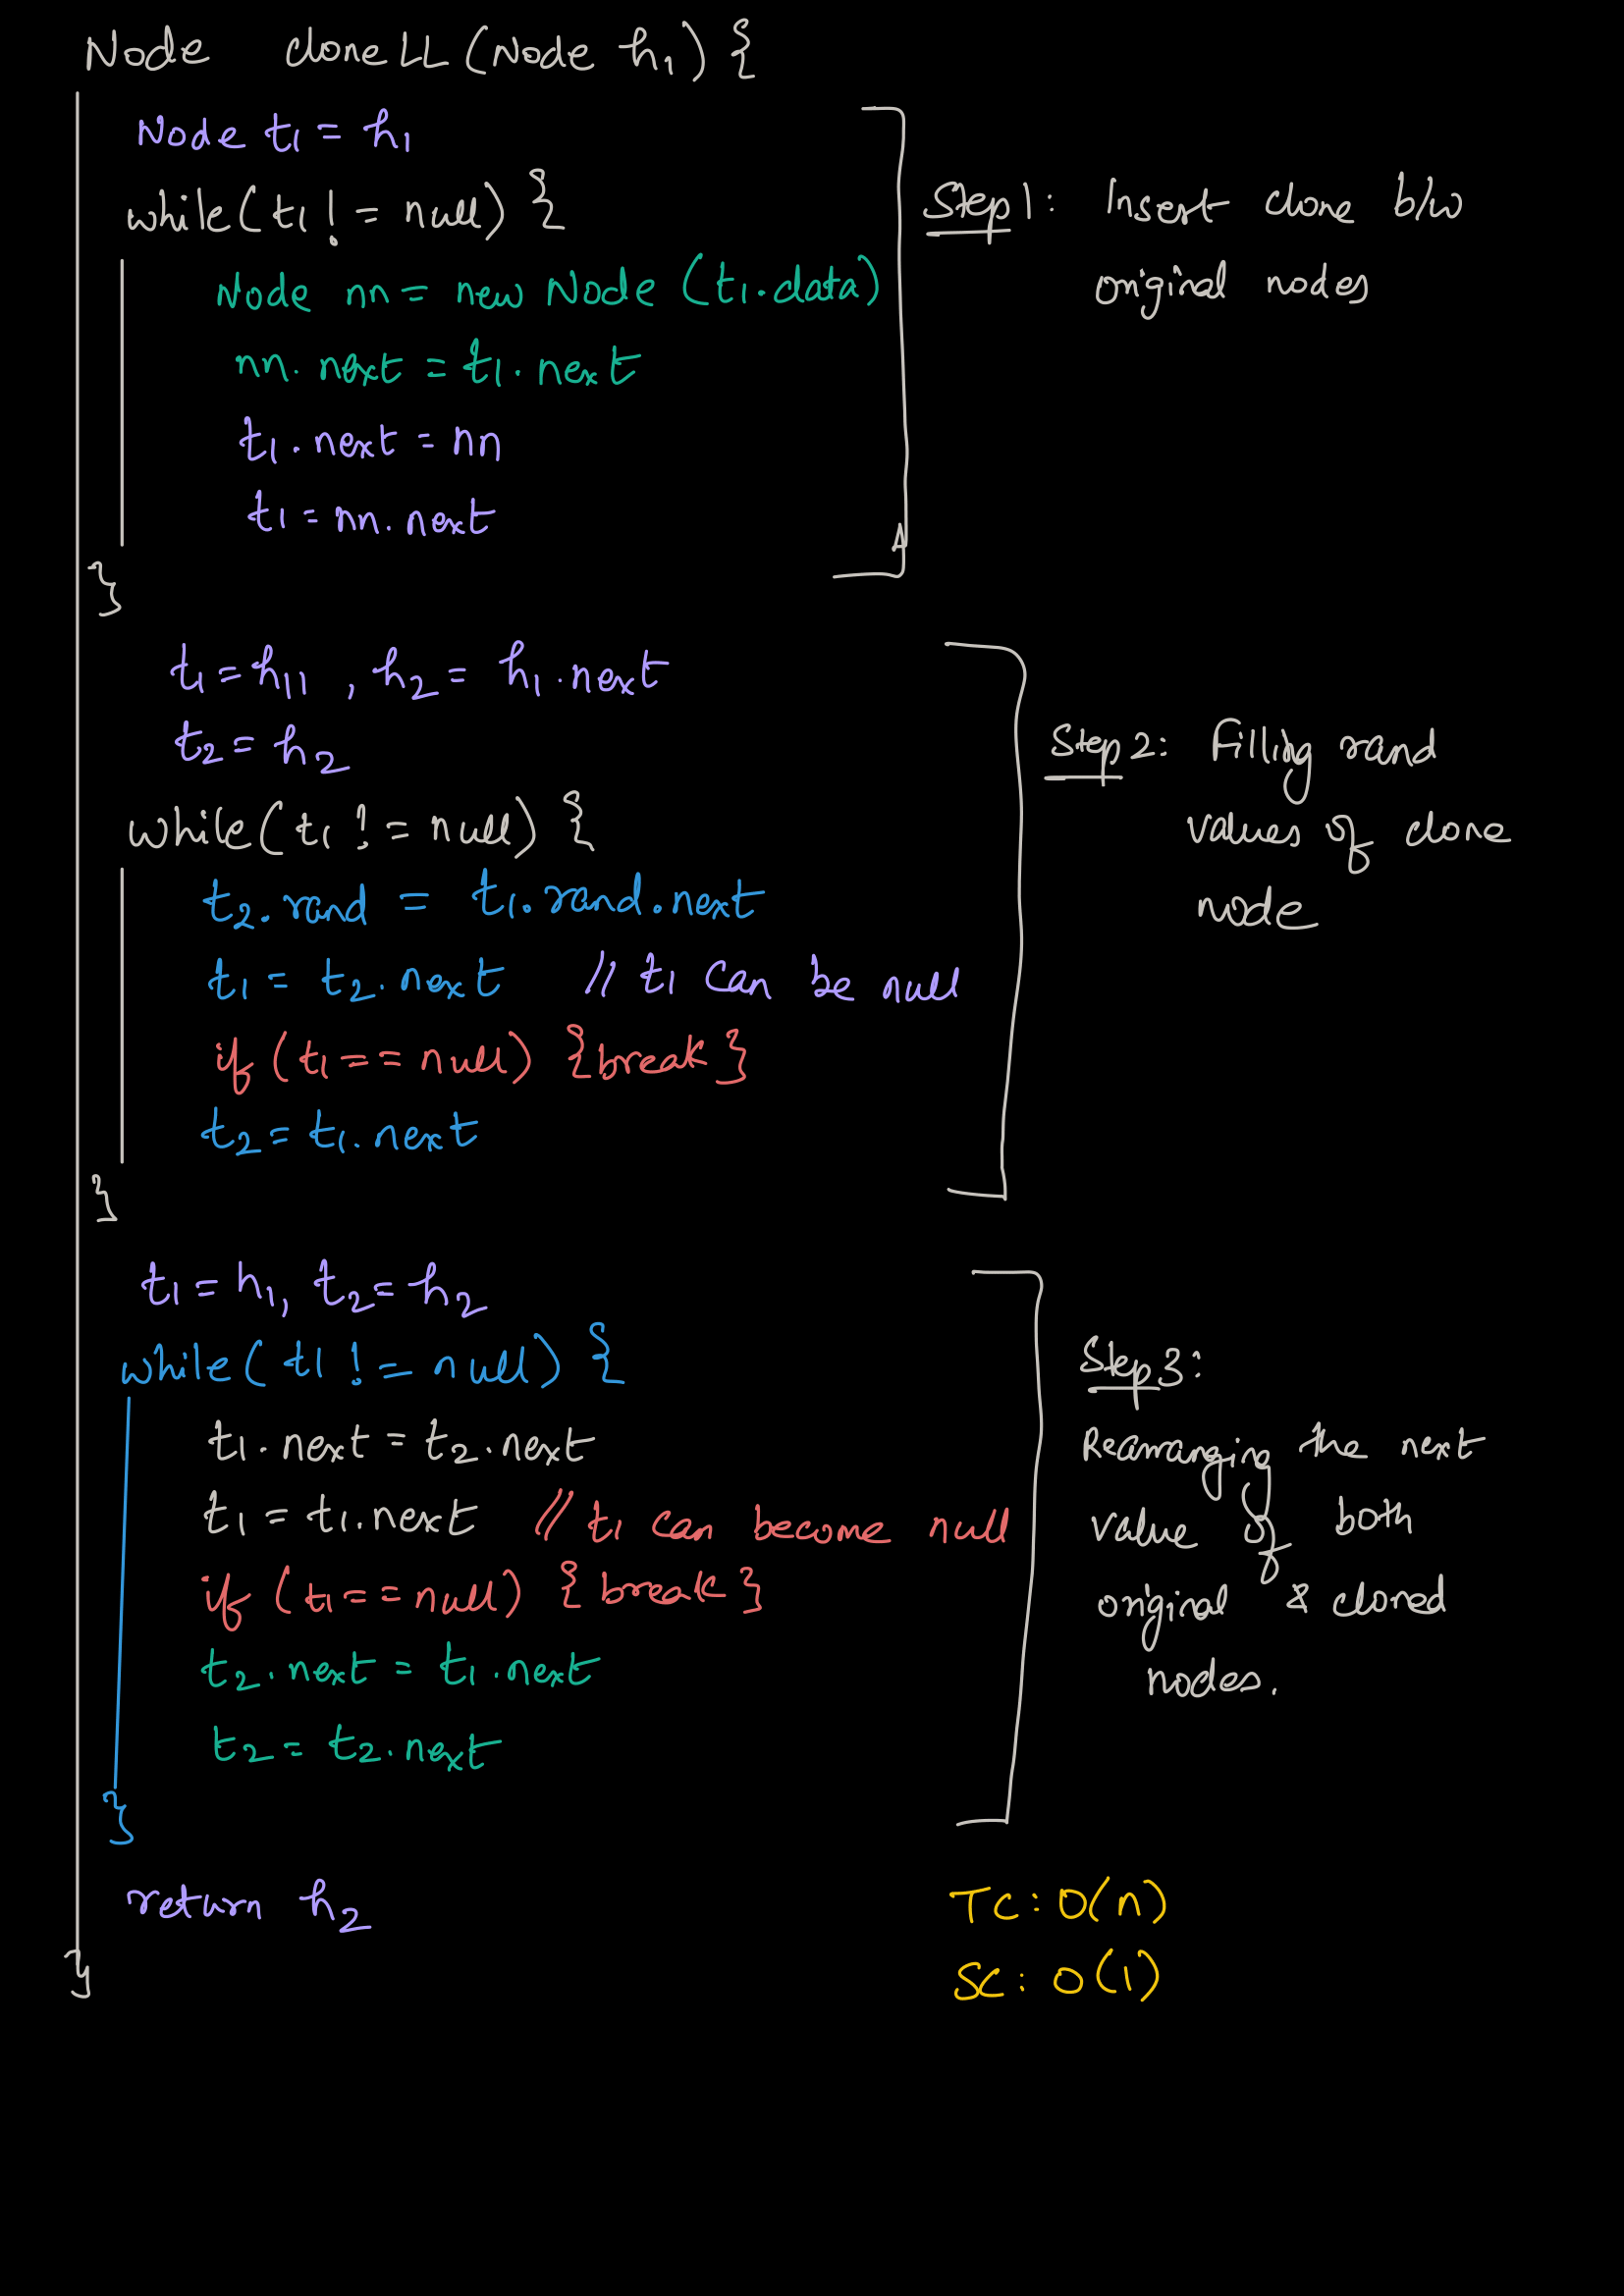 Node cloneLL(Node h1) {
Node t1 = h1
while(t1 != null) {
Node nn = new Node (t1.data)
nn.next = t1.next
t1.next = nn
t1 = nn.next
}
Step1: Insert clone b/w
original nodes
t1 = h11 , h2 = h1.next
t2 = h2
while(t1 != null) {
t2.rand = t1.rand.next
t1 = t2.next // t1 can be null
if (t1 == null) {break}
t2 = t1.next
}
Step2: Filling rand
values of clone
node
t1 = h1, t2 = h2
while(t1 != null) {
t1.next = t2.next
t1 = t1.next // t1 can become null
if (t1 == null) {break}
t2.next = t1.next
t2 = t2.next
}
Step3:
Rearranging the next
value of both
original & cloned
nodes.
return h2
}
TC: O(n)
SC: O(1)